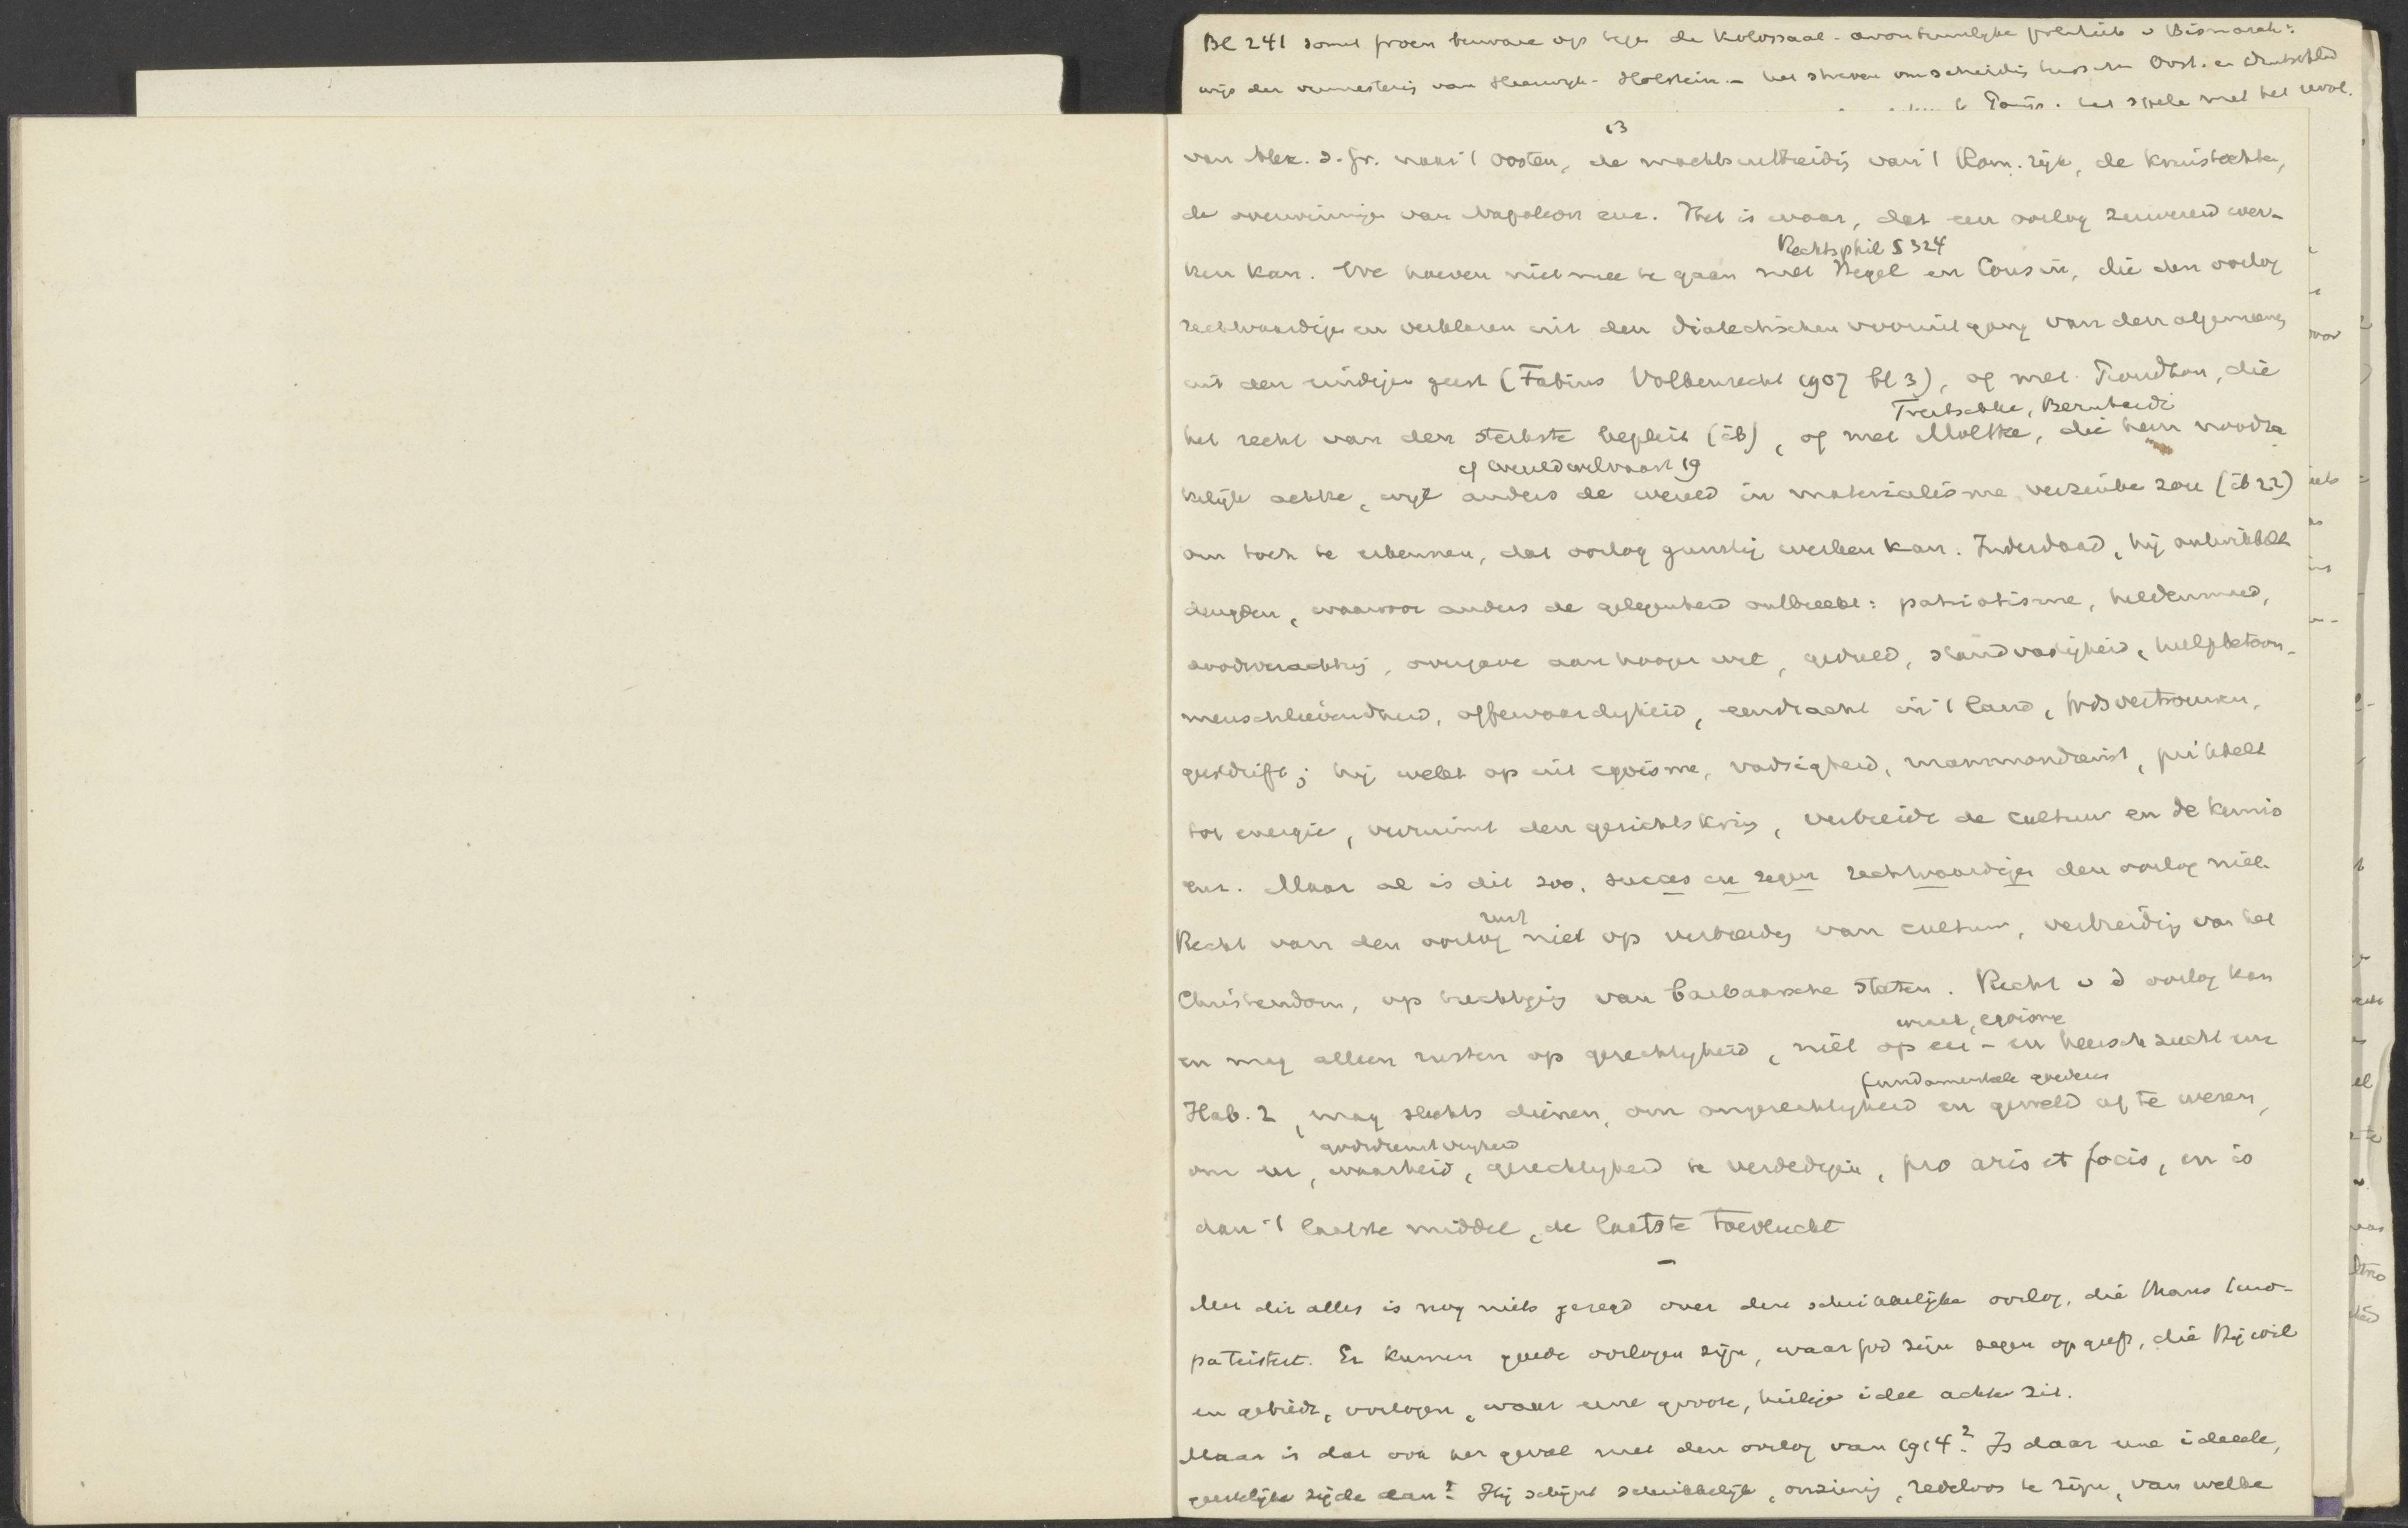 Bl 241 somt bewijze op tegen de kolossaal-avontuurlijke politiek v Bismarck:
wijs der van Sleeswijk-Holstein - het streven om scheidig tusschen Oost. en Duitschland
het spele met het
13
van Alex. d. Gr. naar 't Oosten, de machtsuitbreidig van 't Rom. rijk, de kruistochten,
de overwinningen van Napoleon enz. Het is waar, dat een oorlog zuiverend wer-
Rechtsphil § 324
ken kan. We hoeven niet mee te gaan met Hegel en Cousin, die den oorlog
rechtvaardigen en verklaren uit den dialectischen vooruitgang van den algemeenen
uit den eindigen geest (Fabius Volkenrecht 1907 bl 3), of met Proudhon, die
Treitschke, Bernhardi
het recht van den sterkste bepleit (ib), of met Moltke, die hem noodza
cf wereldwelvaart 19
kelijk achtte, wijl anders de wereld in materialisme verzinken zou (ib 22)
om toch te erkennen, dat oorlog gunstig werken kan. Inderdaad, hij ontwikkelt
deugden, waarvoor anders de gelegenheid ontbreekt: patriotisme, heldenmoed,
doodsverachting, overgave aan hooger wet, geduld, standvastigheid, hulpbetoon,
menschlievendheid, offervaardigheid, eendracht in 't land, Godsvertrouwen,
geestdrift; hij wekt op uit egoisme, vadsigheid, mammondienst, prikkelt
tot energie, verruimt den gezichtskring, verbreidt de cultuur en de kennis
enz. Maar al is dit zoo, succes en zegen rechtvaardigen den oorlog niet.
rust
Recht van den oorlog niet op verbreidig van cultuur, verbreidig van het
Christendom, op tuchtiging van barbaarsche staten. Recht v d oorlog kan
wraak, egoisme
en mag alleen rusten op gerechtigheid, niet op eer- en heerschzucht enz
fundamenteele goederen
Hab. 2, mag slechts dienen, om ongerechtigheid en geweld af te weren,
godsdienstvrijheid
om er, waarheid, gerechtigheid te verdedigen, pro aris et focis, en is
dan 't laatste middel, de laatste toevlucht
—
Met dit alles is nog niets gezegd over den schrikkelijken oorlog, die thans Euro-
pa teistert. Er kunnen goede oorlogen zijn, waar God zijn zegen op geeft, die Hij wil
en gebiedt, oorlogen, waar eene groote, heilige idee achter zit.
Maar is dat ook het geval met den oorlog van 1914? Is daar eene ideeele,
geestelijke zijde aan? Hij schijnt schrikkelijk, onzinnig, redeloos te zijn, van welke